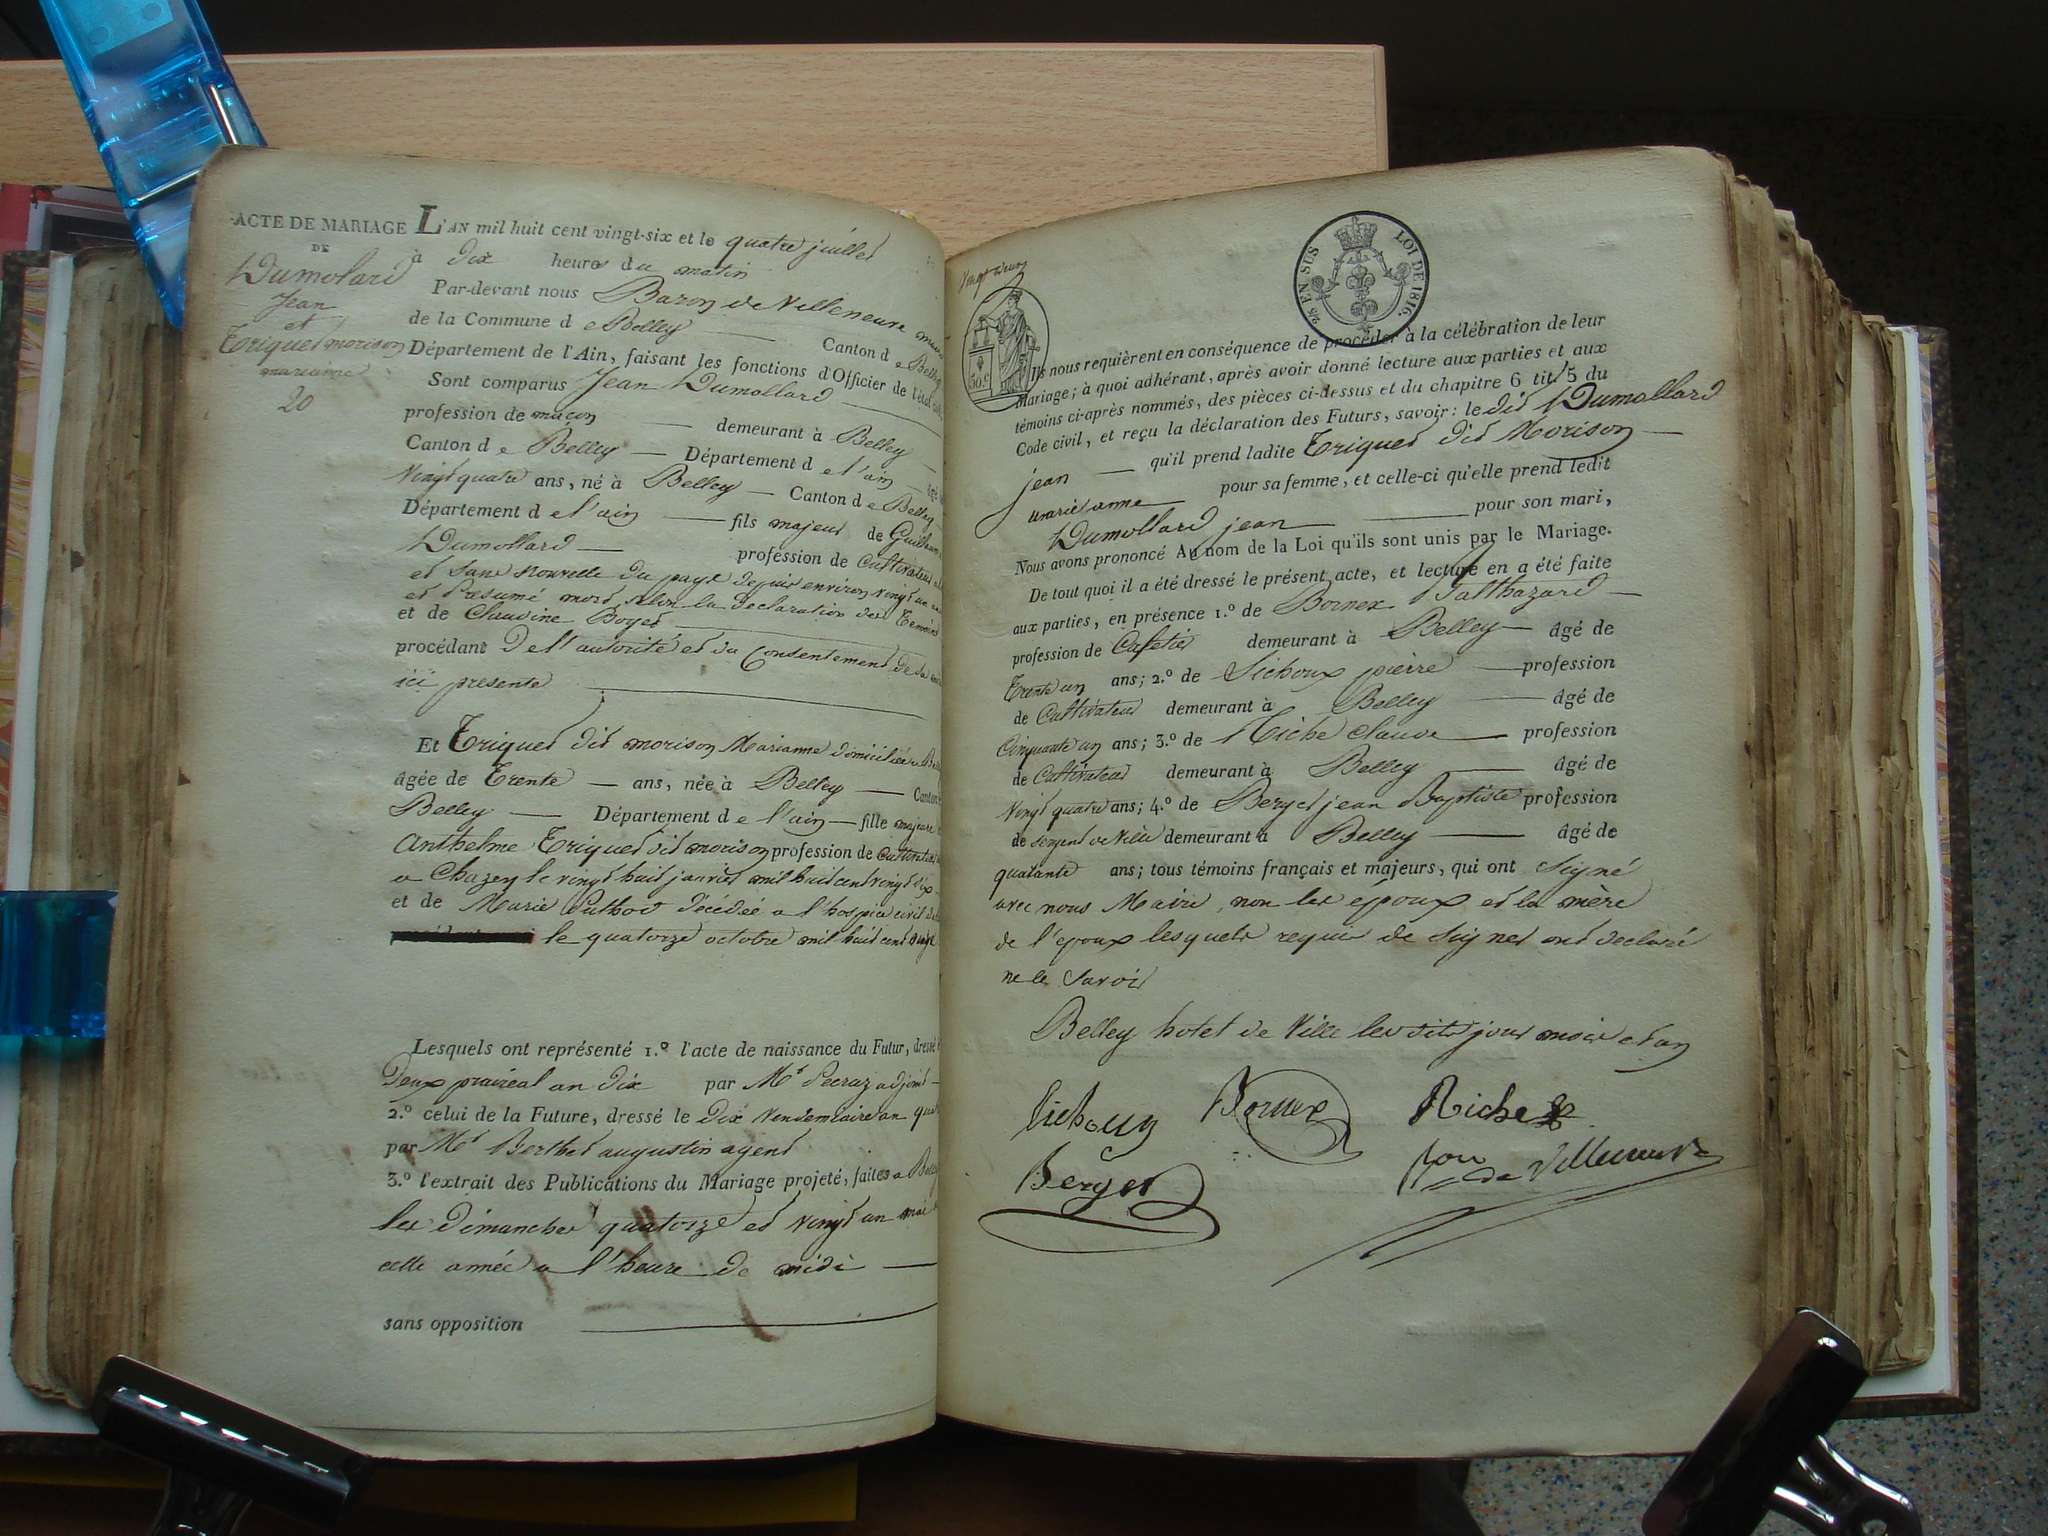 ACTE DE MARIAGE
DE
Dumolard
Jean
et
Triquet morison
marianne
20
L'AN mil huit cent vingt-six et le quatre juillet
à dix heures du matin
Par-devant nous Baron de Villeneuve maire
de la Commune d e Belley Canton d e Belley
Département de l'Ain, faisant les fonctions d'Officier de l'état civil
Sont comparus Jean Dumollard
profession de maçon demeurant à Belley
Canton d e Belley Département d e l'ain âgé
Vingt quatre ans, né à Belley Canton d e Belley
Département d e l'ain fils majeur de Guillaume
Dumollard profession de Cultivateur
et sans nouvelle du pays depuis environ vingt
et présumé mort selon la déclaration des temoins
et de Claudine Boyet
procédant de l'autorité et du Consentement de sa
ici presente
Et Triquet dit morison Marianne domiciliée a Belley
âgée de Trente ans, née à Belley Canton
Belley Département d e l'ain fille majeure
Anthelme Triquet dit morison profession de Cultivateur
a Chazey le vingt huit janvier mil huit cent vingt dix
et de Marie décédée a l'hospice civil
le quatorze octobre mil huit cent
Lesquels ont représenté 1.º l'acte de naissance du Futur, dressé
Deux prairéal an dix par Mr Pecraz adjoint
2.º celui de la Future, dressé le Dix Vendemiaire an
par Mr Berthet augustin agent
3.º l'extrait des Publications du Mariage projeté, faites a Belley
les dimanches quatorze et vingt un mai
cette année a l'heure de midi
sans opposition
Vingt deux
50 c
25 EN SUS LOI DE 1816.
Ils nous requièrent en conséquence de procéder à la célébration de leur
Mariage; à quoi adhérant, après avoir donné lecture aux parties et aux
témoins ci-après nommés, des pièces ci-dessus et du chapitre 6 tit. 5 du
Code civil, et reçu la déclaration des Futurs, savoir: le dit Dumollard
jean qu'il prend ladite Triquet dit Morison
marie anne pour sa femme, et celle-ci qu'elle prend ledit
Dumollard jean pour son mari,
Nous avons prononcé Au nom de la Loi qu'ils sont unis par le Mariage.
De tout quoi il a été dressé le présent acte, et lecture en a été faite
aux parties, en présence 1.º de Bornex Balthazard
profession de Cafetier demeurant à Belley âgé de
Trente un ans; 2.º de Sichoux pierre profession
de Cultivateur demeurant à Belley âgé de
Cinquante un ans; 3.º de Riche claude profession
de Cultivateur demeurant à Belley âgé de
Vingt quatre ans; 4.º de Berget jean Baptiste profession
de sergent de Ville demeurant à Belley âgé de
quarante ans; tous témoins français et majeurs, qui ont Signé
avec nous Maire, non les epoux et la mère
de l'epoux lesquels requis de Signer ont declaré
ne le Savoir
Belley hotel de Ville les dits jour mois et an
Sichoux Bornex Riche
Berget Bon de Villeneuve